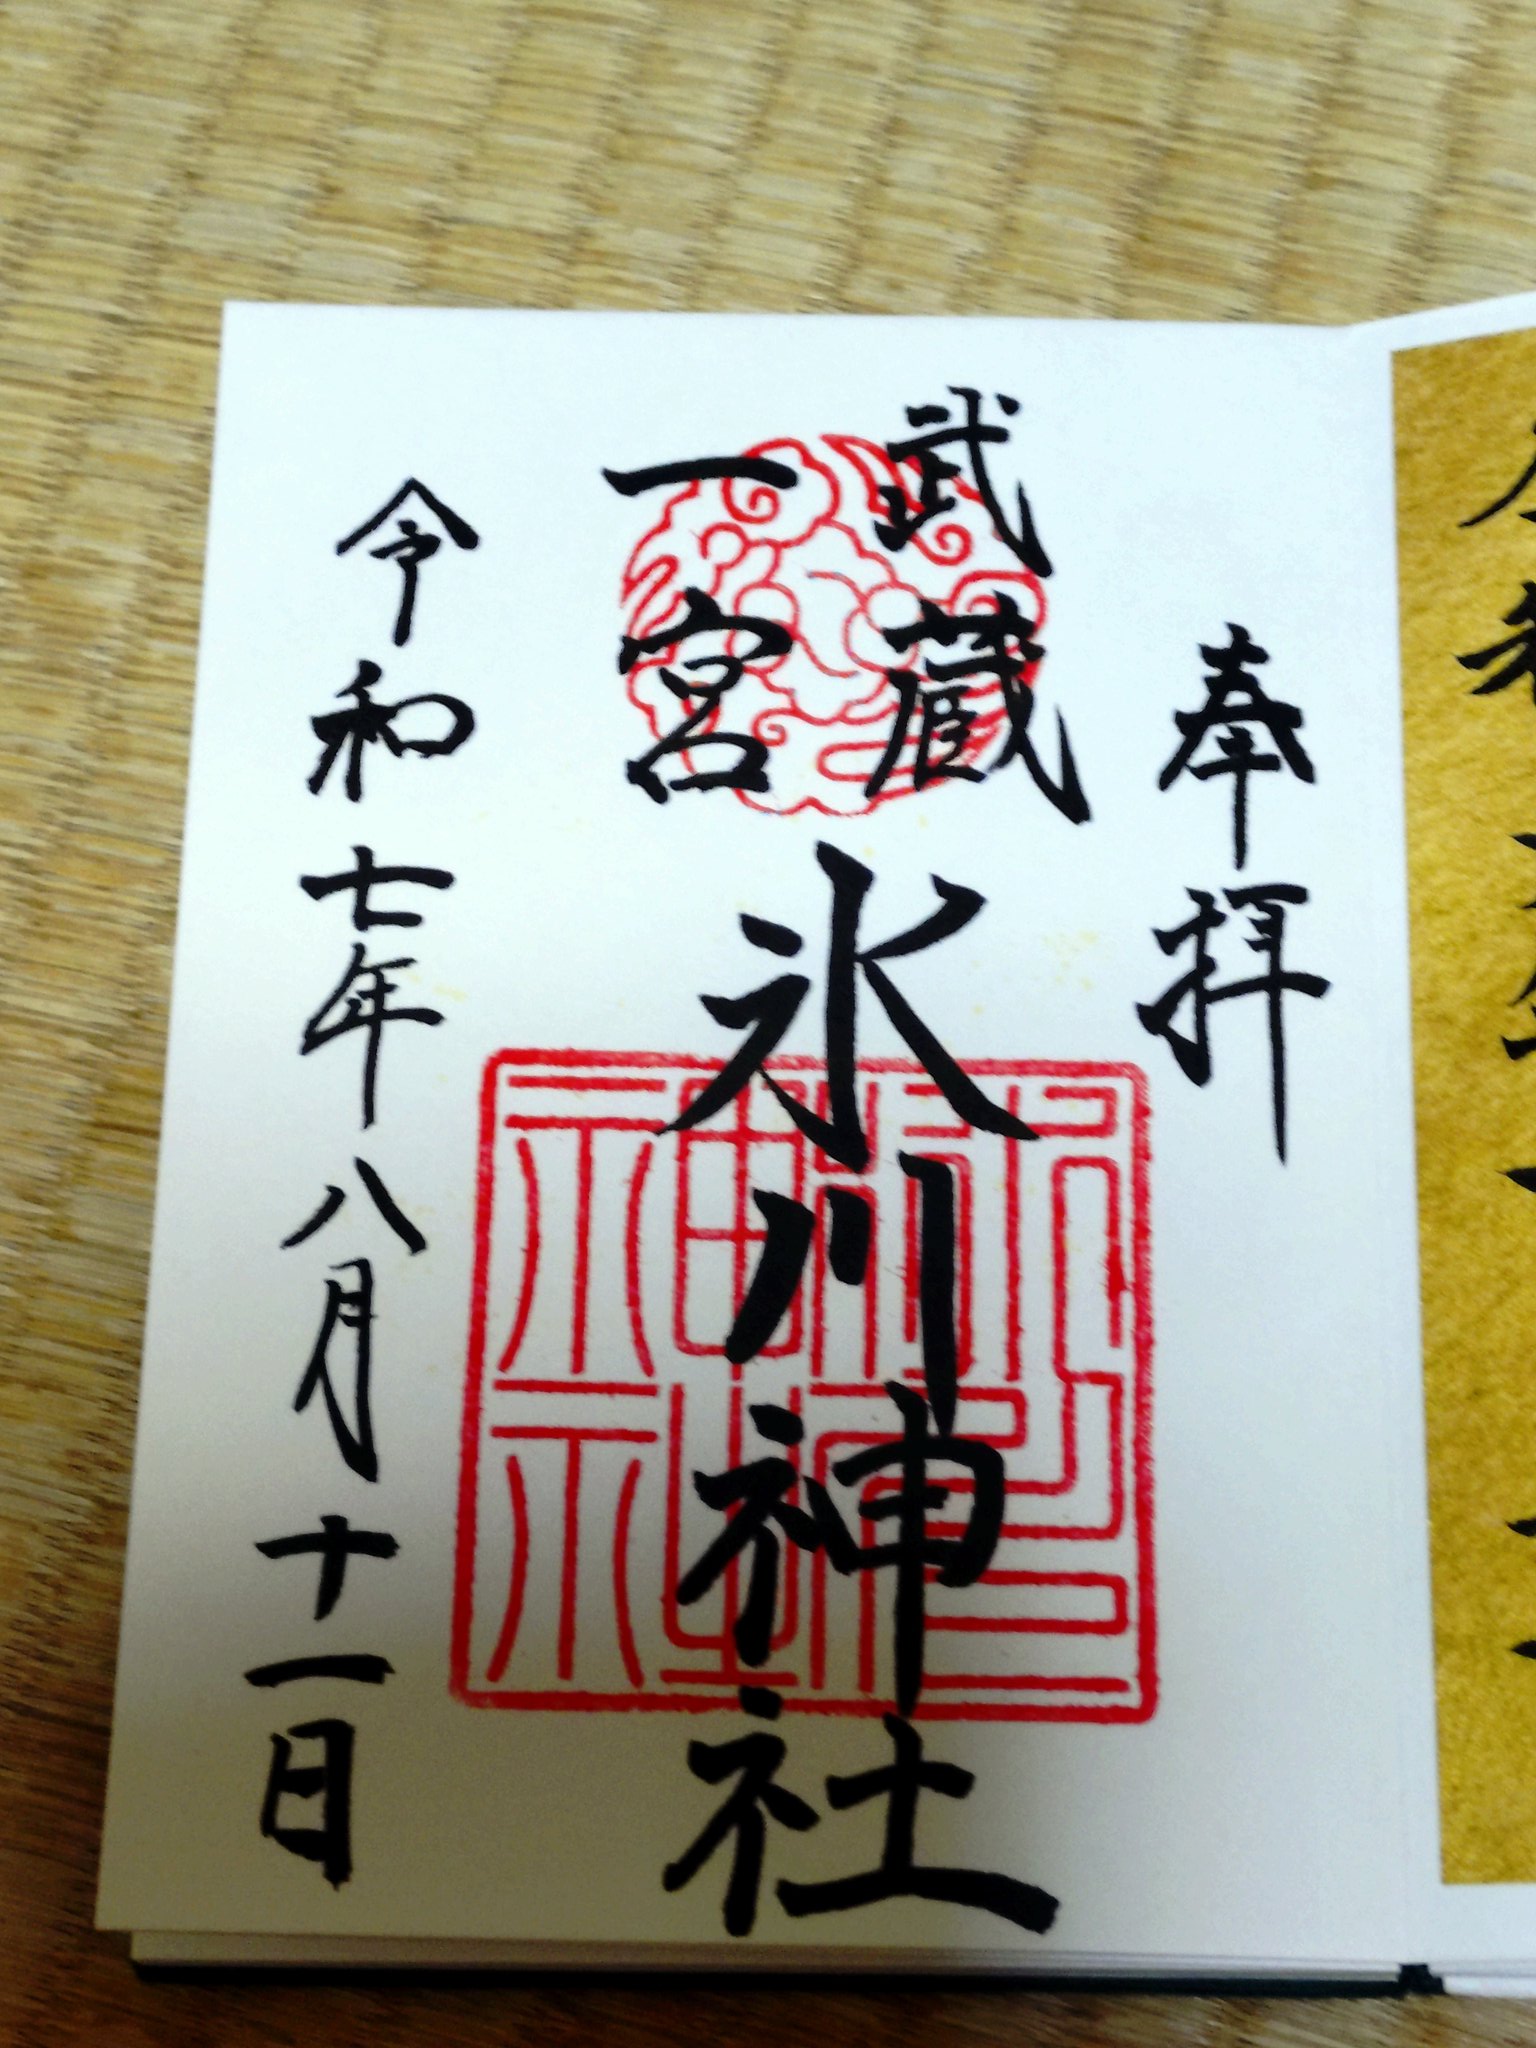 奉拝
武蔵
一宮
氷川神社
令和七年八月十一日